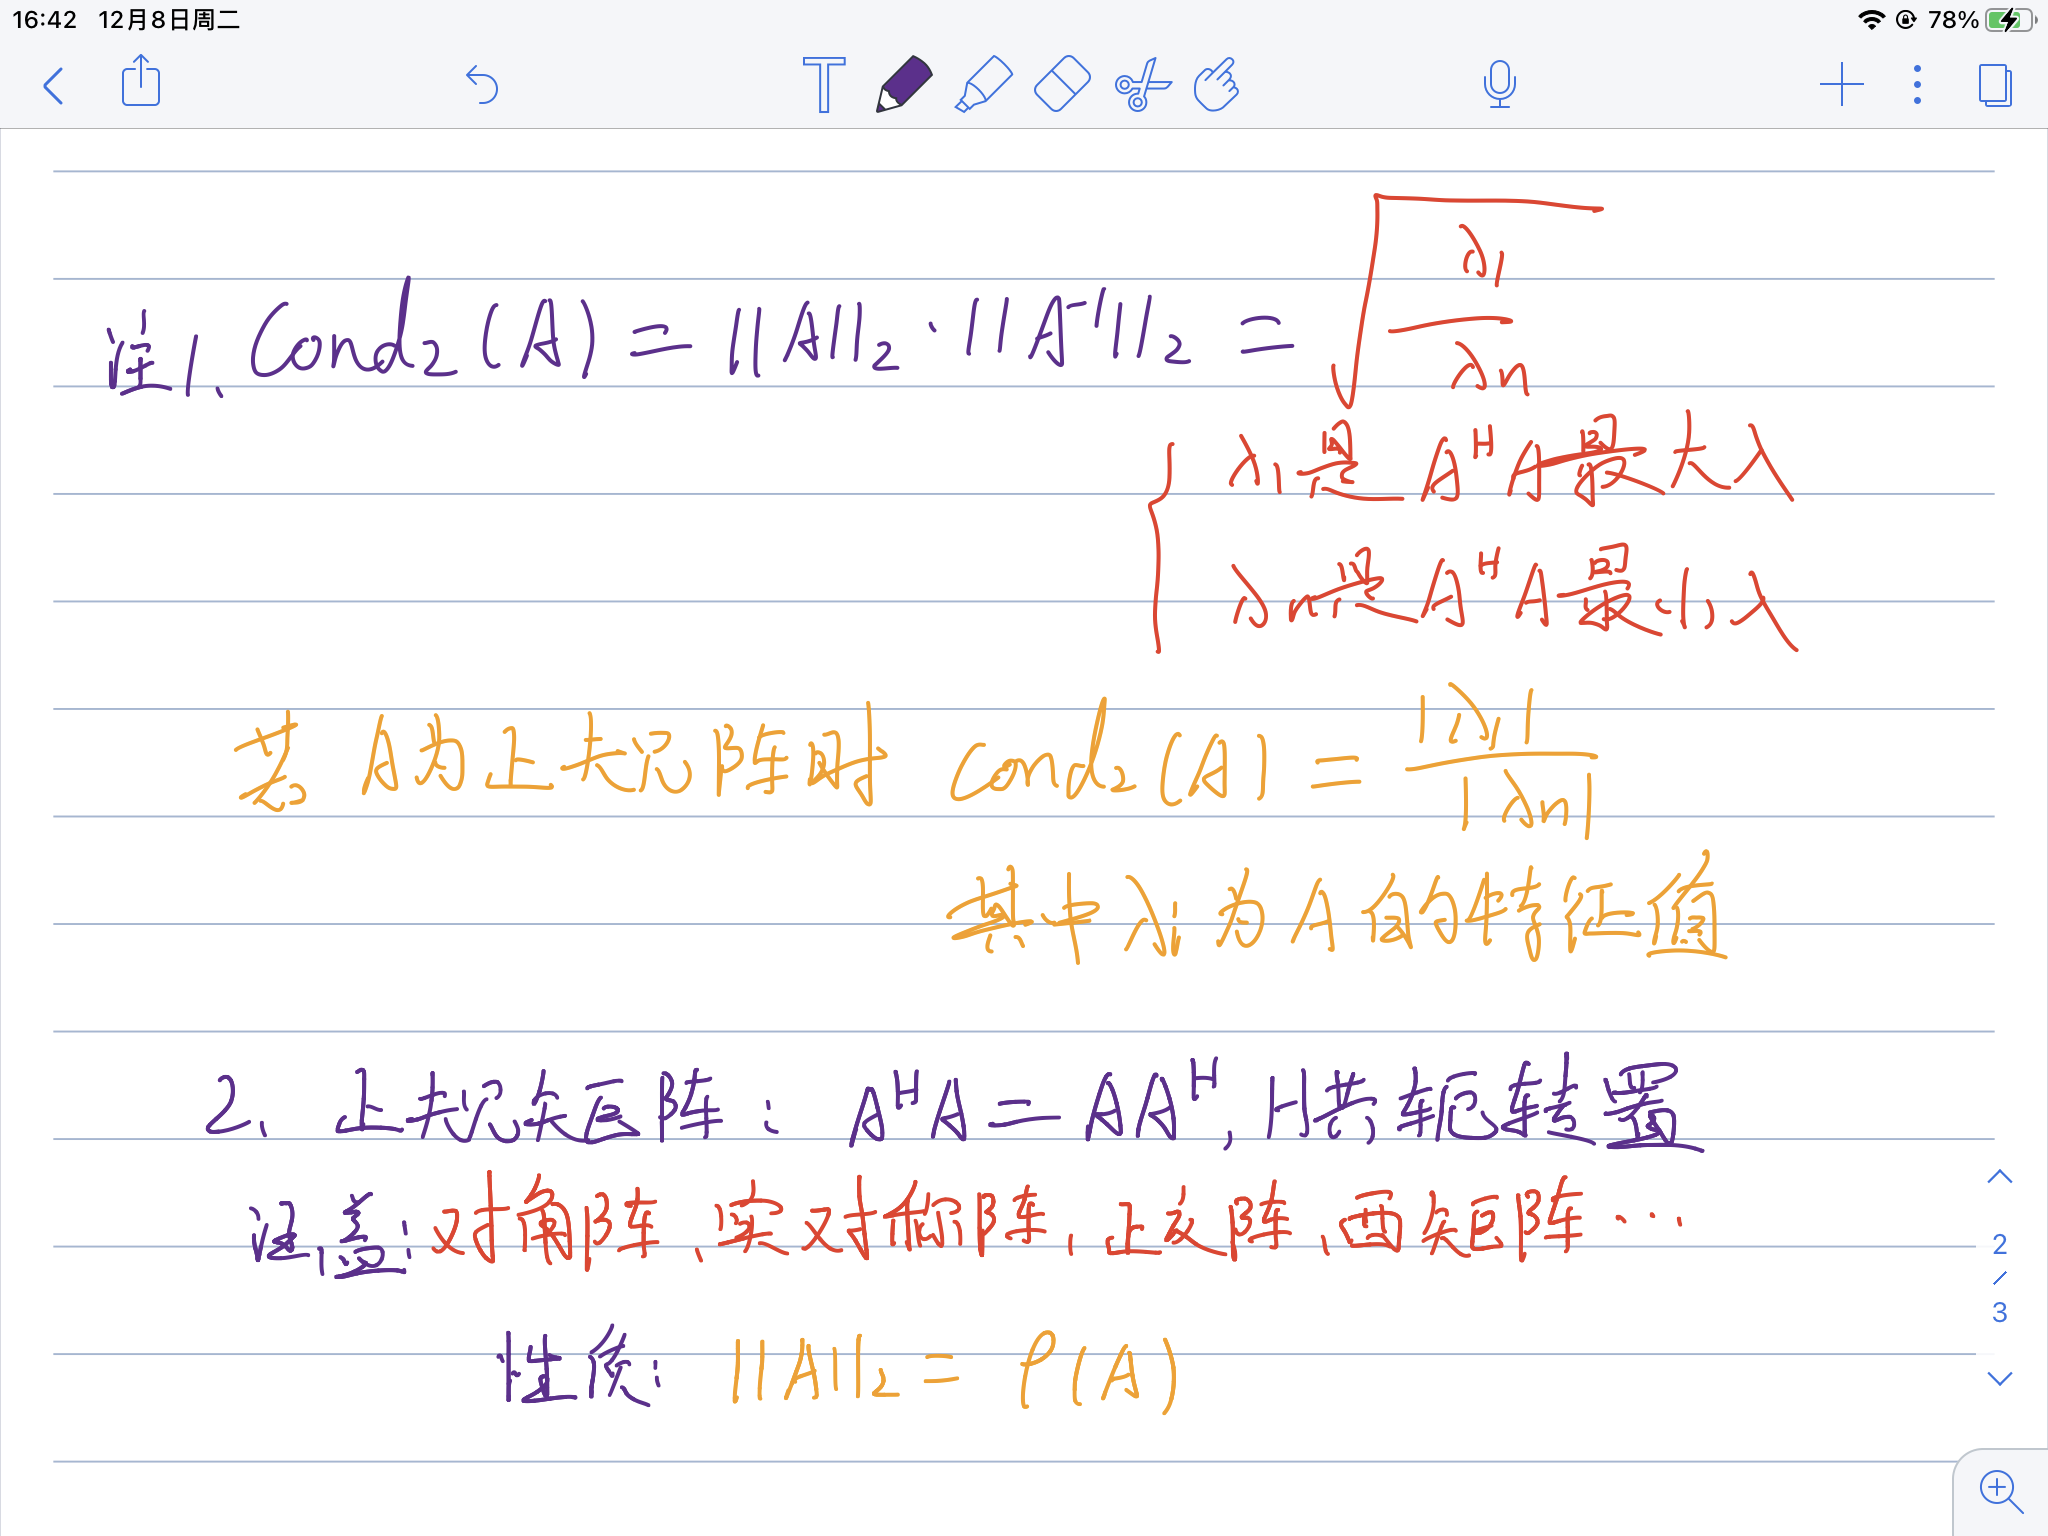 16:42 12月8日周二 78%
注1、Cond₂(A) = ||A||₂·||A⁻¹||₂ = √(λ1/λn)
λ1是AᴴA最大λ
λn是AᴴA最小λ
若A为正规阵时 Cond₂(A) = |λ1|/|λn|
其中λi为A的特征值
2、正规矩阵：AᴴA = AAᴴ, H共轭转置
涵盖：对角阵、实对称阵、正交阵、酉矩阵…
性质：||A||₂ = ρ(A)
2/3